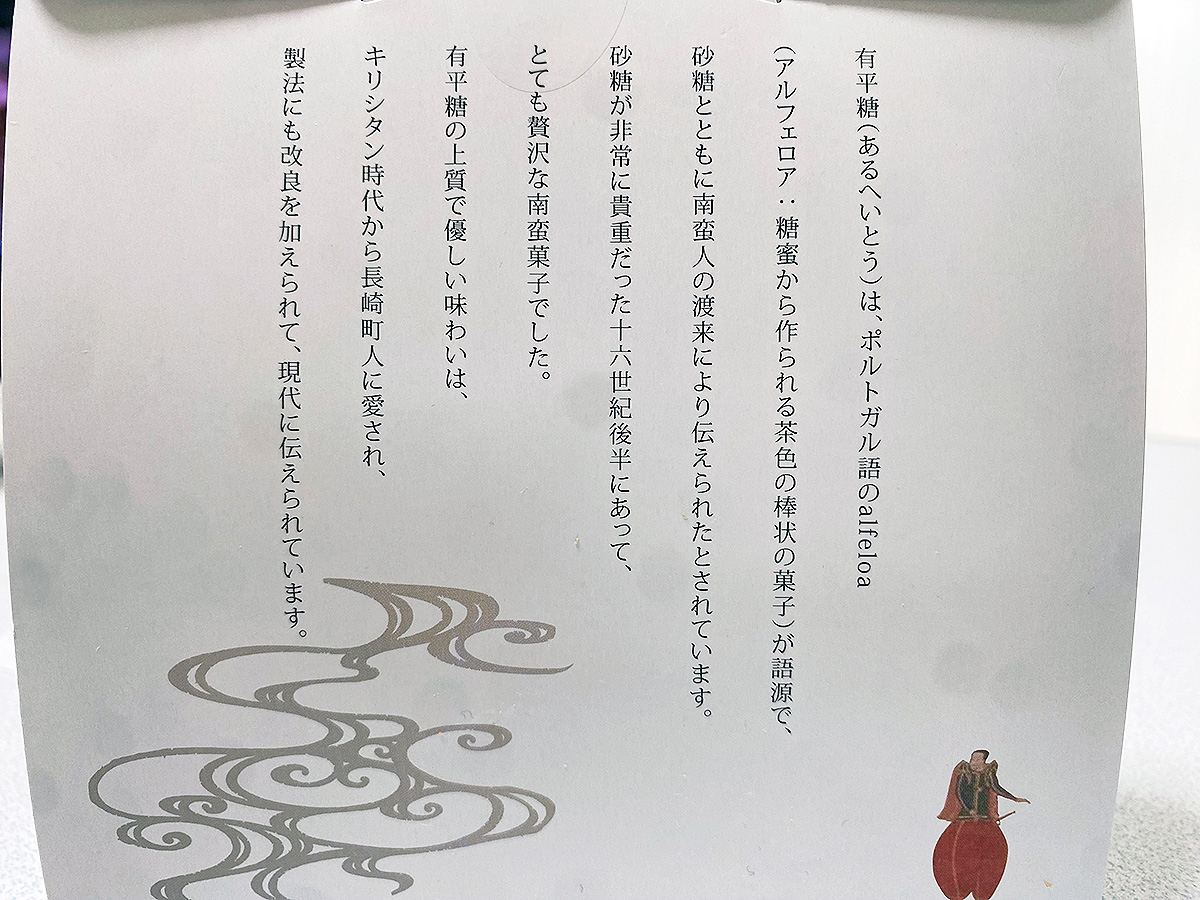 有平糖(あるへいとう)は、ポルトガル語のalfeloa
(アルフェロア:糖蜜から作られる茶色の棒状の菓子)が語源で、
砂糖とともに南蛮人の渡来により伝えられたとされています。
砂糖が非常に貴重だった十六世紀後半にあって、
とても贅沢な南蛮菓子でした。
有平糖の上質で優しい味わいは、
キリシタン時代から長崎町人に愛され、
製法にも改良を加えられて、現代に伝えられています。